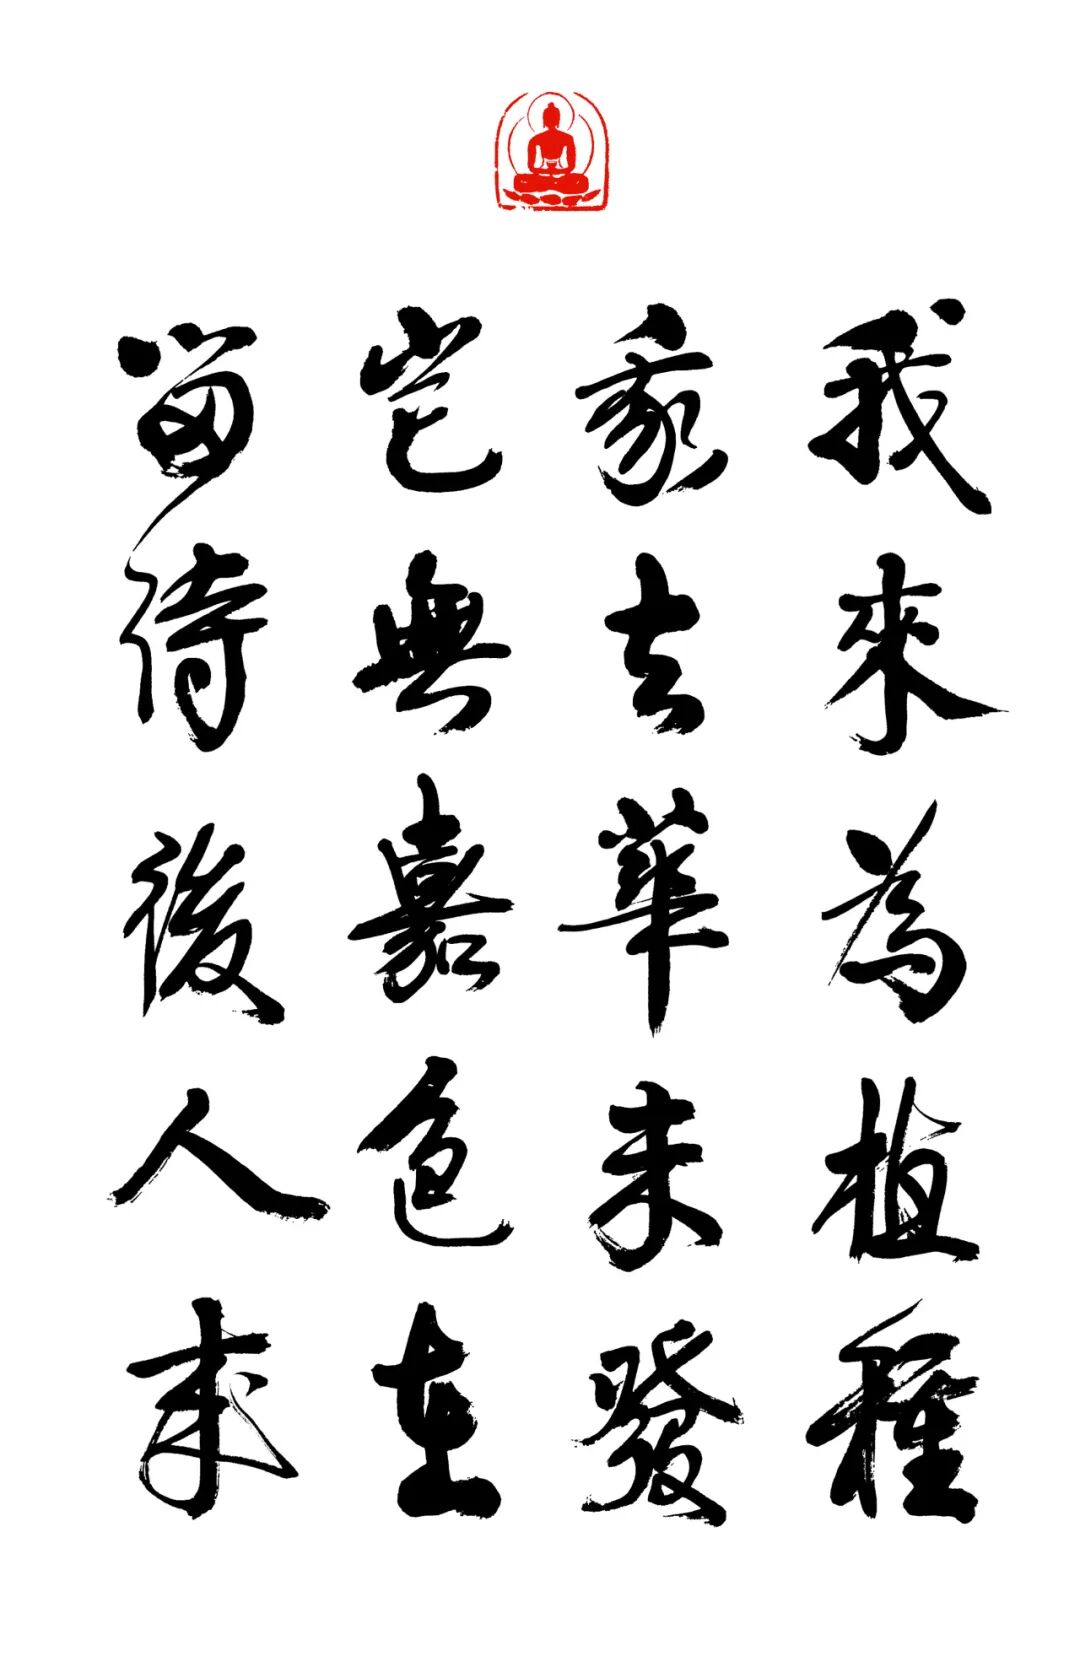 我來為植種
我去華未發
豈無嘉色在
留待後人來